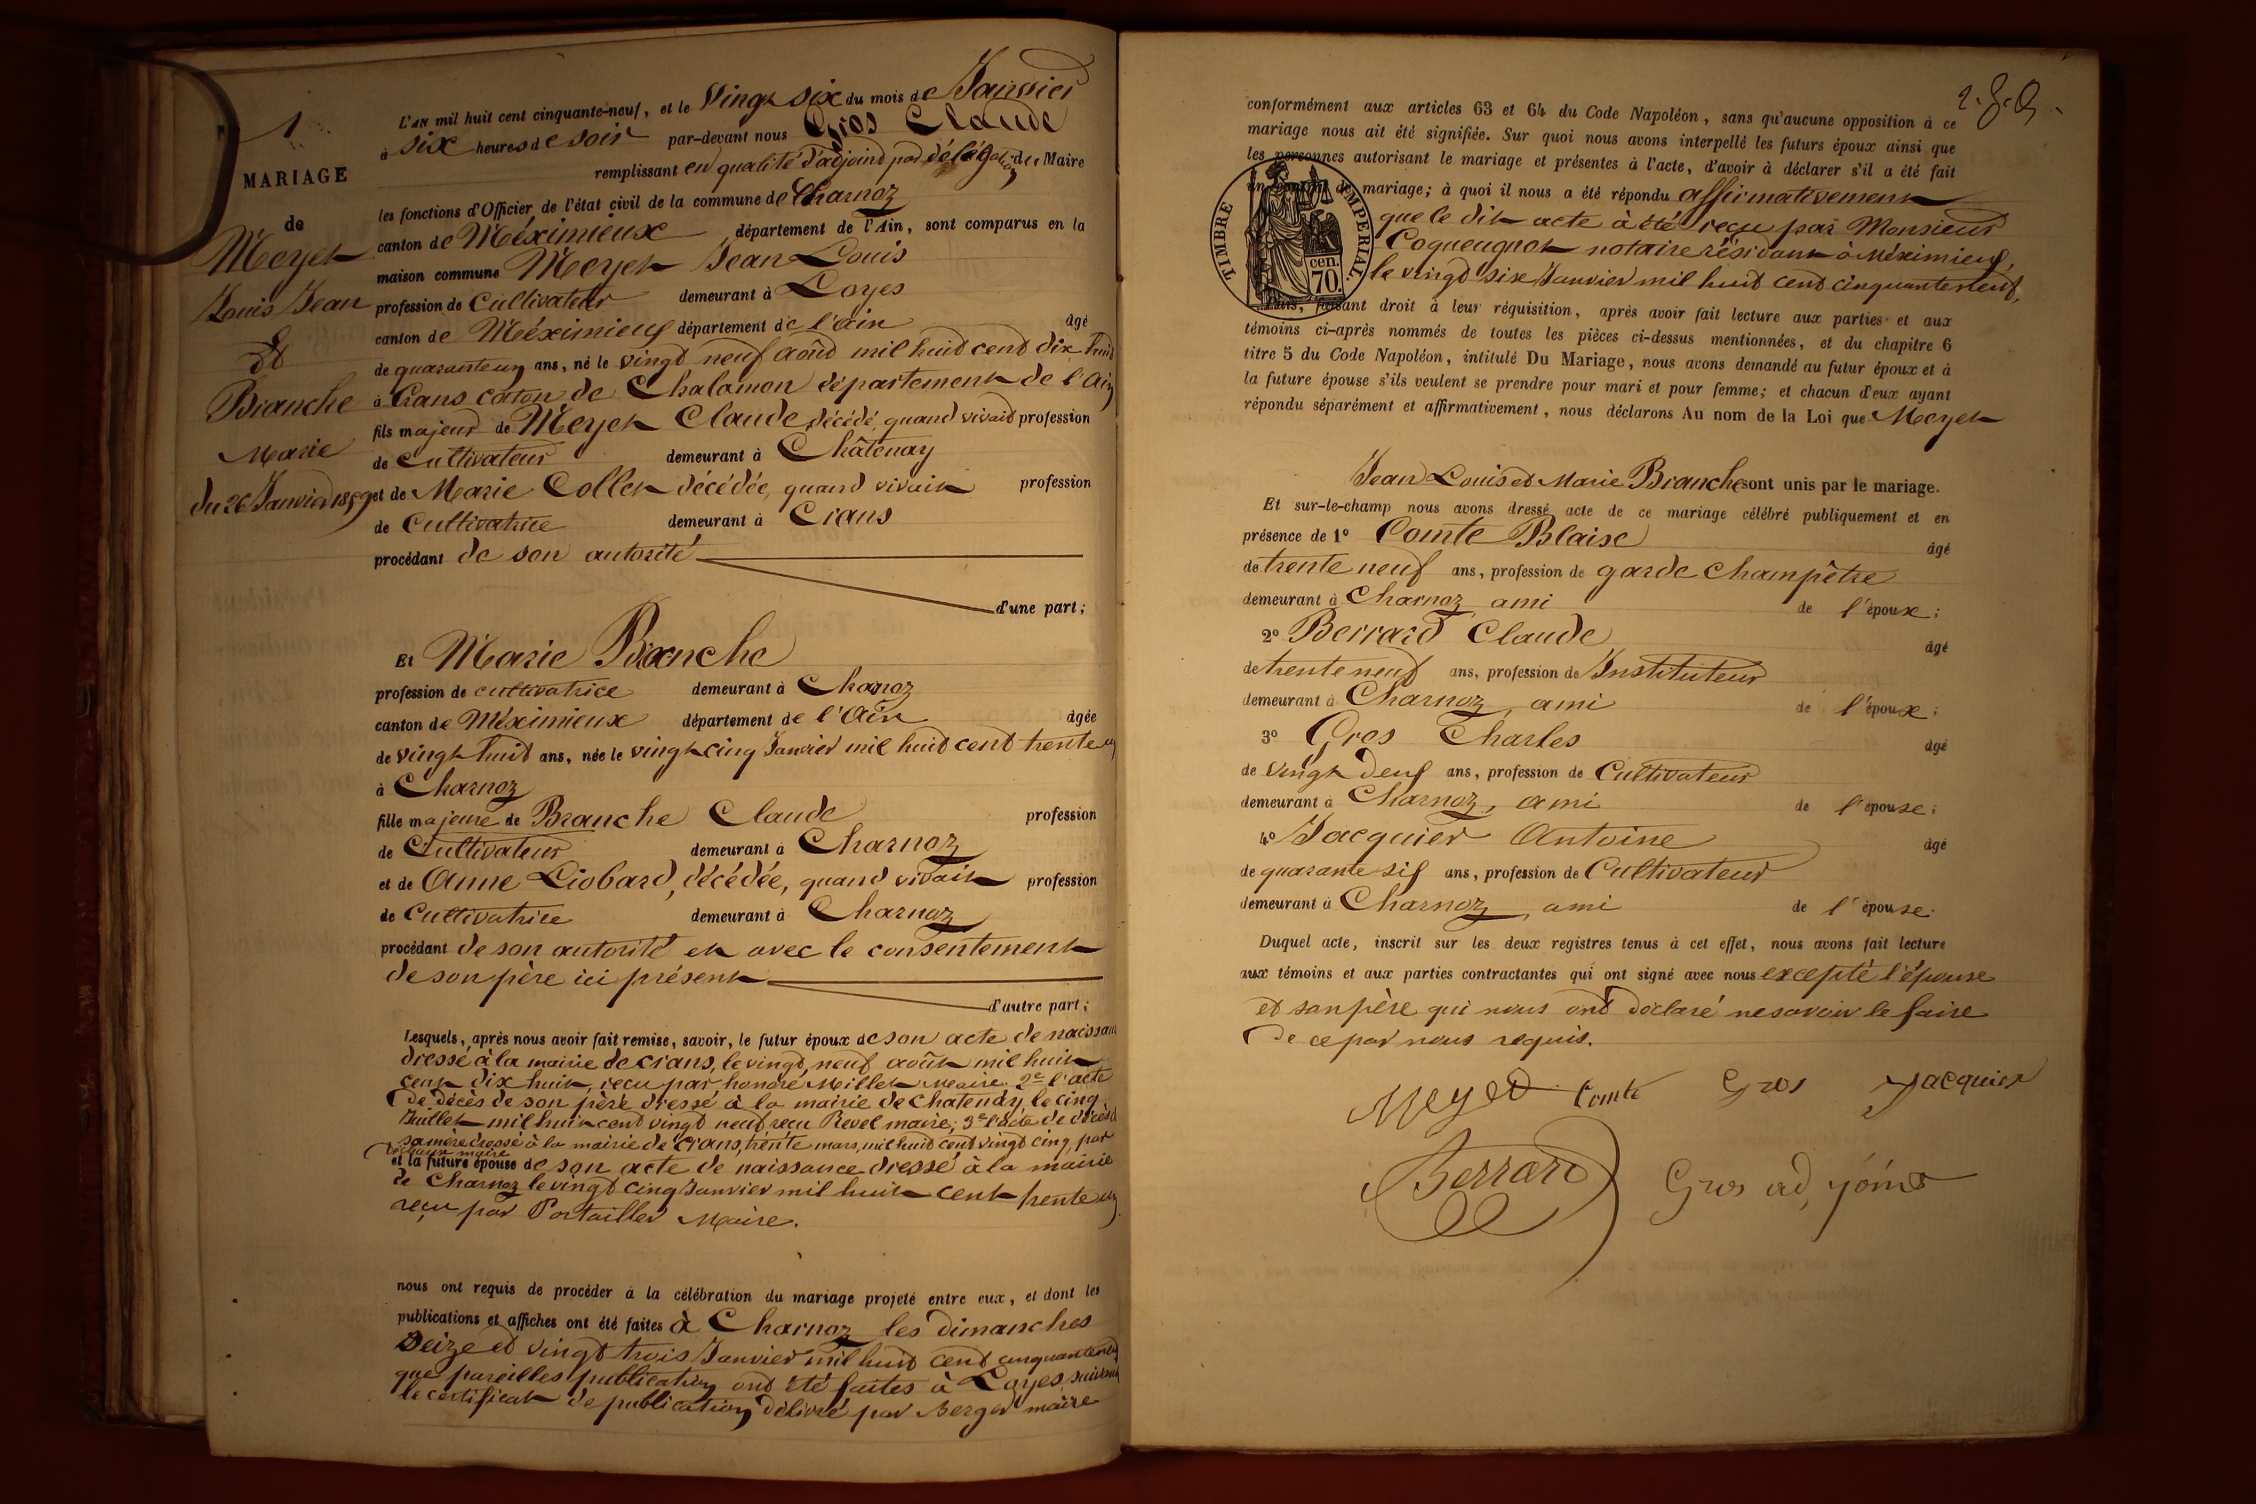 1
MARIAGE
de
Meyet
Louis Jean
Et
Branche
Marie
du 26 Janvier 1859
L'AN mil huit cent cinquante-neuf, et le Vingt six du mois de Janvier
à six heures de soir par-devant nous Gros Claude
remplissant en qualité d'adjoind par délégation du Maire
les fonctions d'Officier de l'état civil de la commune de Charnoz
canton de Méximieux département de l'Ain, sont comparus en la
maison commune Meyet Jean Louis
profession de Cultivateur demeurant à Loyes
canton de Méximieux département de l'ain âgé
de quaranteun ans, né le vingt neuf août mil huid cend dix huid
à Crans caton de Chalamon département de l'ain
fils majeur de Meyet Claude, décédé, quand vivaid profession
de Cultivateur demeurant à Châtenay
et de Marie Collet décédée, quand vivait profession
de Cultivatrice demeurant à Crans
procédant de son autorité
d'une part;
Et Marie Branche
profession de cultivatrice demeurant à Charnoz
canton de Méximieux département de l'Ain âgée
de vingt huid ans, née le vingt cinq Janvier mil huid cend trente un
à Charnoz
fille majeure de Branche Claude profession
de Cultivateur demeurant à Charnoz
et de Anne Liobard, décédée, quand vivait profession
de Cultivatrice demeurant à Charnoz
procédant de son autorité et avec le consentement
de son père ici présent
d'autre part;
Lesquels, après nous avoir fait remise, savoir, le futur époux de son acte de naissance
dressé à la mairie de Crans, le vingt neuf août mil huit
cent dix huit, reçu par honoré Millet Maire. 2e l'acte
de décès de son père dressé à la mairie de Chatenay le cinq
Juillet mil huit cend vingt neuf reçu Revel maire; 3e l'acte de décès de
sa mère dressé à la mairie de Crans, trente mars, mil huid cend vingt cinq, par
maire
et la future épouse de son acte de naissance dressé à la mairie
de Charnoz le vingt cinq Janvier mil huit cent trente un
reçu par Portallier Maire.
nous ont requis de procéder à la célébration du mariage projeté entre eux, et dont les
publications et affiches ont été faites à Charnoz les dimanches
seize et vingt trois Janvier mil huid cend cinquante neuf
que pareilles publication ont été faites à Loyes suivant
le certificat de publication délivré par Berger maire
conformément aux articles 63 et 64 du Code Napoléon, sans qu'aucune opposition à ce
mariage nous ait été signifiée. Sur quoi nous avons interpellé les futurs époux ainsi que
les personnes autorisant le mariage et présentes à l'acte, d'avoir à déclarer s'il a été fait
un contrat de mariage; à quoi il nous a été répondu affirmativement
que le dit acte à été reçu par Monsieur
Coqueugnot notaire résidant à Méximieux,
le vingt six Janvier mil huid cend cinquante neuf,
TIMBRE IMPERIAL.
cen.
70.
Puis, faisant droit à leur réquisition, après avoir fait lecture aux parties et aux
témoins ci-après nommés de toutes les pièces ci-dessus mentionnées, et du chapitre 6
titre 5 du Code Napoléon, intitulé Du Mariage, nous avons demandé au futur époux et à
la future épouse s'ils veulent se prendre pour mari et pour femme; et chacun d'eux ayant
répondu séparément et affirmativement, nous déclarons Au nom de la Loi que Meyet
Jean Louis et Marie Branche sont unis par le mariage.
Et sur-le-champ nous avons dressé acte de ce mariage célébré publiquement et en
présence de 1º Comte Blaise âgé
de trente neuf ans, profession de garde Champêtre
demeurant à Charnoz ami de l'épouse;
2º Berrard Claude âgé
de trente neuf ans, profession de Instituteur
demeurant à Charnoz, ami de l'épouse;
3º Gros Charles âgé
de vingt deux ans, profession de Cultivateur
demeurant à Charnoz, ami de l'épouse;
4º Jacquier Antoine âgé
de quarante six ans, profession de Cultivateur
demeurant à Charnoz, ami de l'épouse.
Duquel acte, inscrit sur les deux registres tenus à cet effet, nous avons fait lecture
aux témoins et aux parties contractantes qui ont signé avec nous excepté l'épouse
et son père qui nous ont déclaré ne savoir le faire
de ce par nous requis.
Meyet Comte Gros Jacquier
Berrard Gros adjoint